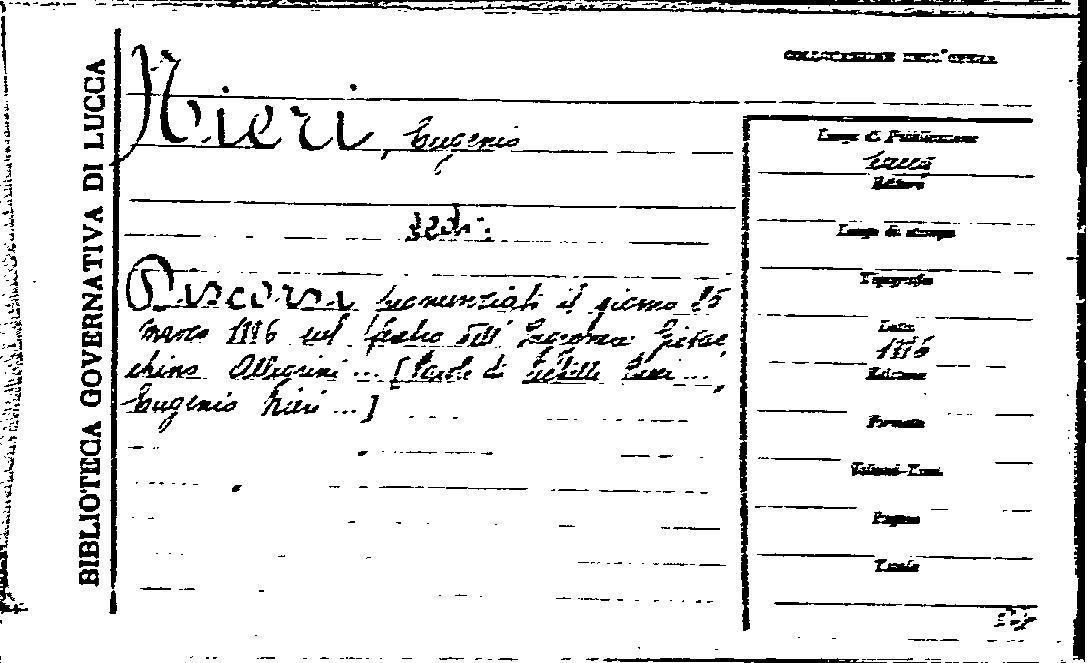 BIBLIOTECA GOVERNATIVA DI LUCCA
COLLOCAZIONE DELL'OPERA
Nieri, Eugenio
vedi:
Discorsi pronunziati il giorno 25
marzo 1886 sul feretro dell'
chino Allegrini ... [Parole di ...
Eugenio Nieri ...]
Luogo di Pubblicazione
Lucca
Editore
Luogo di stampa
Tipografia
Data
1886
Edizione
Formato
Volumi-Tomi
Pagine
Tavole